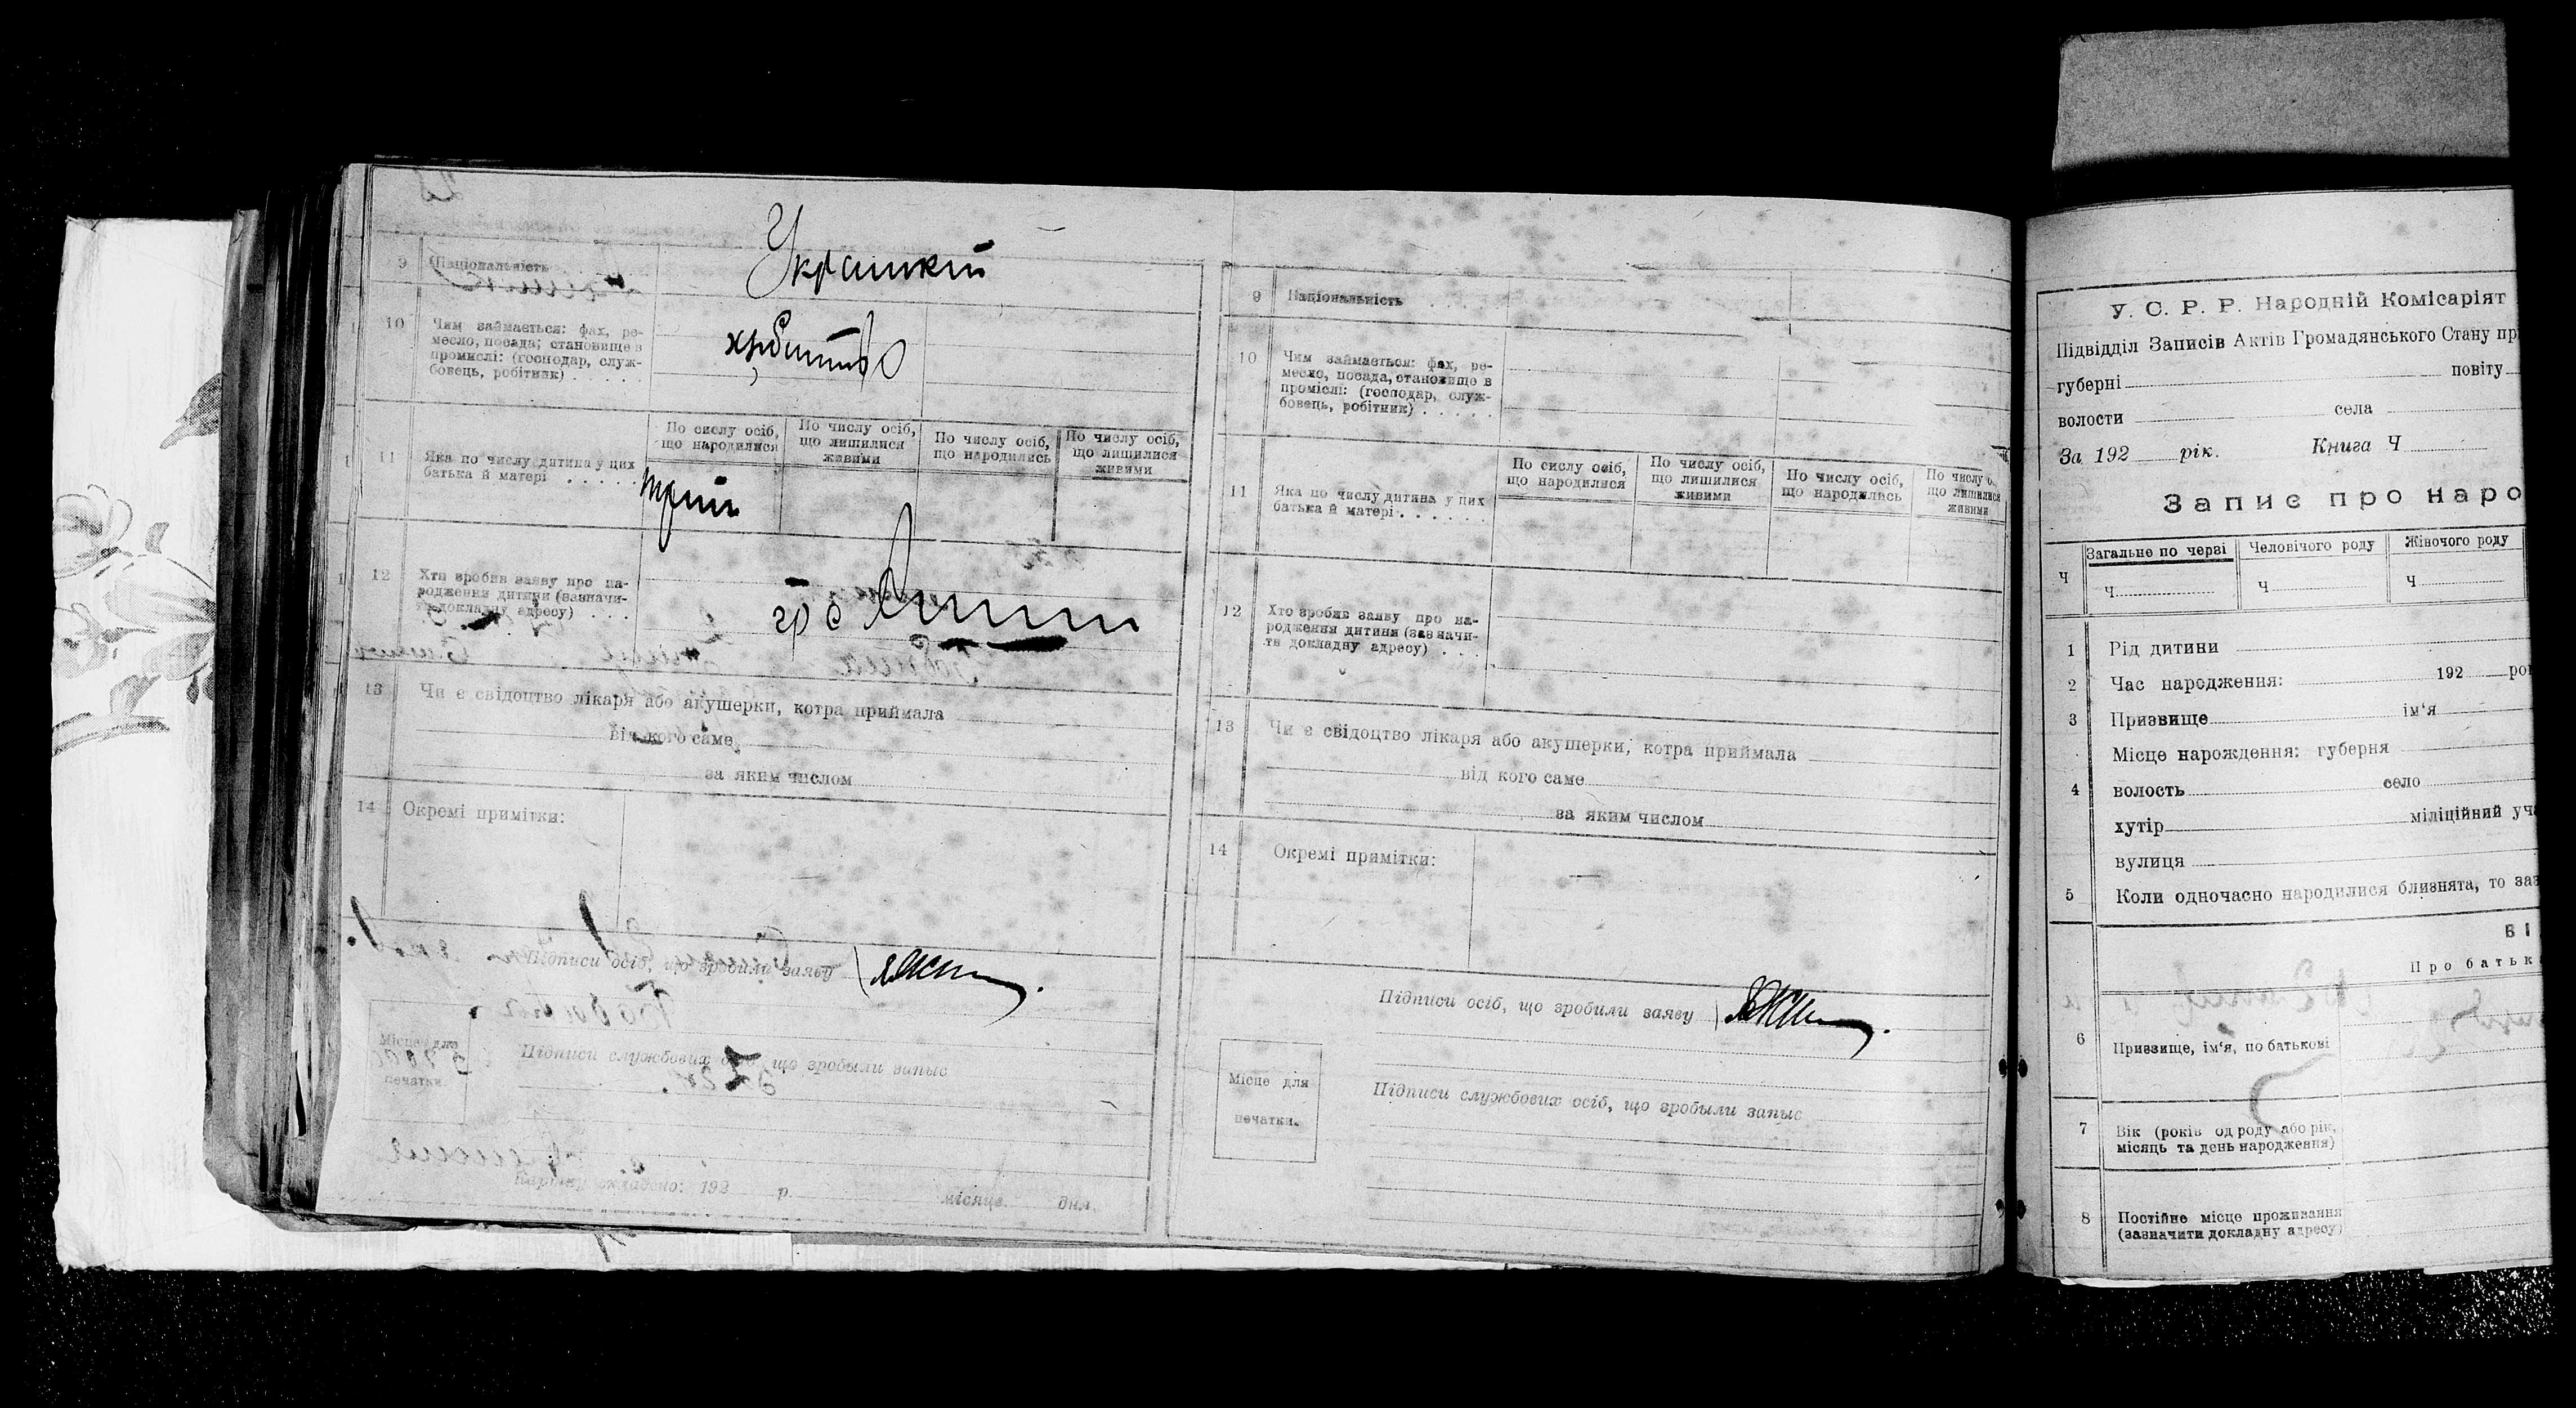 9 Національність
Украінкій
10 Чим займається: фах, ре-
месло, посада; становище в
промислі: (господар, служ-
бовець, робітник) . . . . .
11 Яка по числу дитина у цих
батька й матері . . . . .
По сислу осіб,
що народилися
По числу осіб,
що лишилися
живими
По числу осіб,
що народились
По числу осіб,
що лишилися
живими
12 Хто зробив заяву про на-
родження дитини (зазначи-
ти докладну адресу) . . .
13 Чи є свідоцтво лікаря або акушерки, котра приймала
від кого саме
за яким числом
14 Окремі примітки:
Підписи осіб, що зробили заяву
Місце для
печатки
Підписи службових осіб, що зробыли запыс
складено: 192 р. місяця дня.
9 Національність . . . . .
10 Чим займається: фах, ре-
месло, посада, становище в
проміслі: (господар, служ-
бовець, робітник) . . . . .
11 Яка по числу дитина у цих
батька й матері . . . . . .
По сислу осіб,
що народилися
По числу осіб,
що лишилися
живими
По числу осіб,
що народились
По числу о
що лишилися
живими
12 Хто зробив заяву про на-
родження дитини (зазначи-
ти докладну адресу) . . .
13 Чи є свідоцтво лікаря або акушерки, котра приймала
від кого саме
за яким числом
14 Окремі примітки:
Підписи осіб, що зробили заяву
Місце для
печатки.
Підписи службових осіб, що зробыли запыс
У. С. Р. Р. Народній Комісаріят
Підвідділ Записів Актів Громадянського Стану пр
губерні повіту
волости села
За 192 рік. Книга Ч
Запис про наро
Ч Загальне по черзі Человічого роду Жіночого роду
Ч Ч Ч
1 Рід дитини
2 Час народження: 192 ро
3 Призвище ім'я
Місце нарождення: губерня
4 волость село
хутір міліційний уча
вулиця
5 Коли одночасно народилися близнята, то заз
ВІ
Про батьк
6 Призвище, ім'я, по батькові
7 Вік (років од роду або рік,
місяць та день народження)
8 Постійне місце проживання
(зазначити докладну адресу)